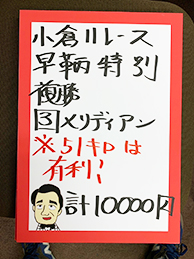 小倉11レース
早鞆特別
複勝
3メリディアン
※51キロは
有利?
計10000円